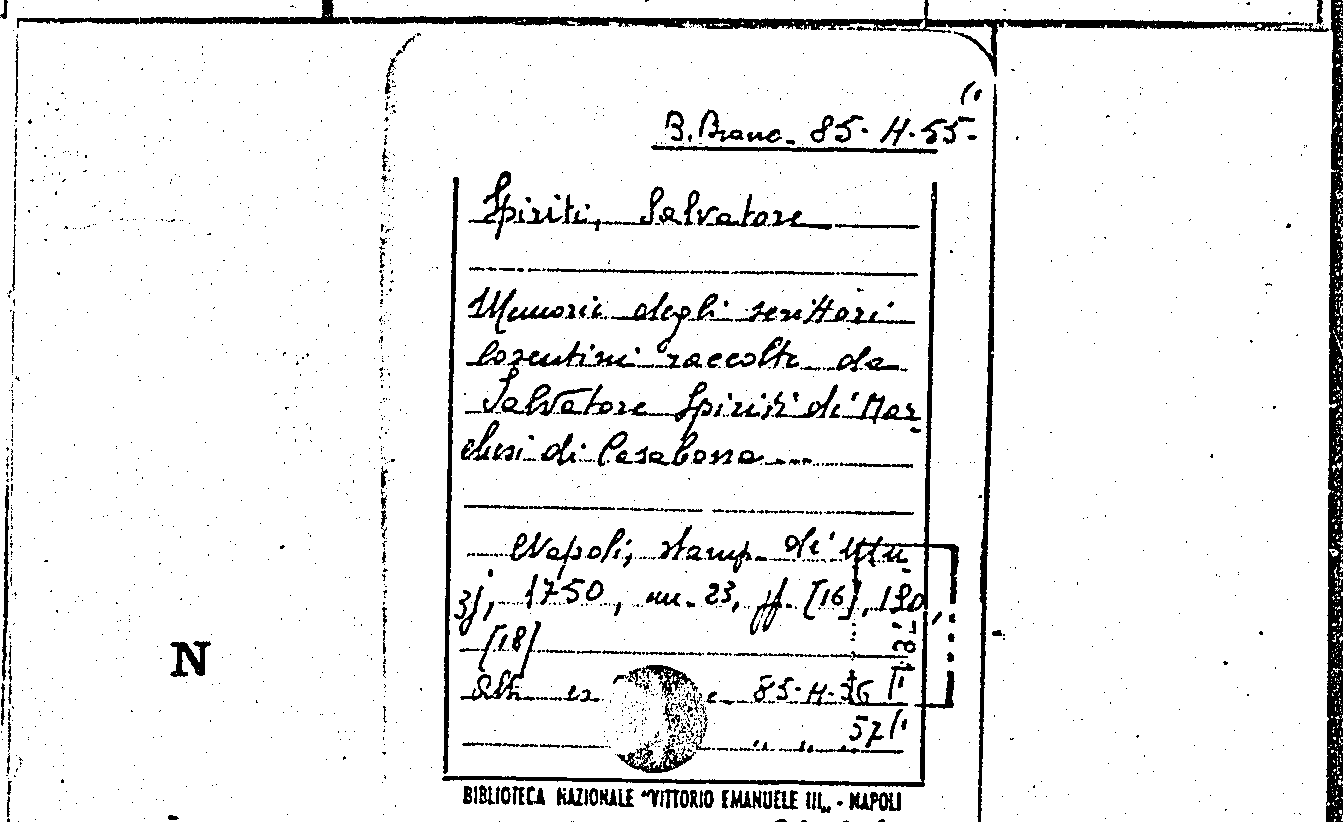 B. Branc. 85. H. 55
Spiriti, Salvatore
Memorie degli scrittori
cosentini raccolte da
Salvatore Spiriti de' Mar-
chesi di Casabona ...
Napoli, stamp. de' Mu-
zj, 1750, cm. 23, pp. [16], 190,
[18]
Altr. es. 85. H. 56
" " 57
N
BIBLIOTECA NAZIONALE "VITTORIO EMANUELE III„ - NAPOLI